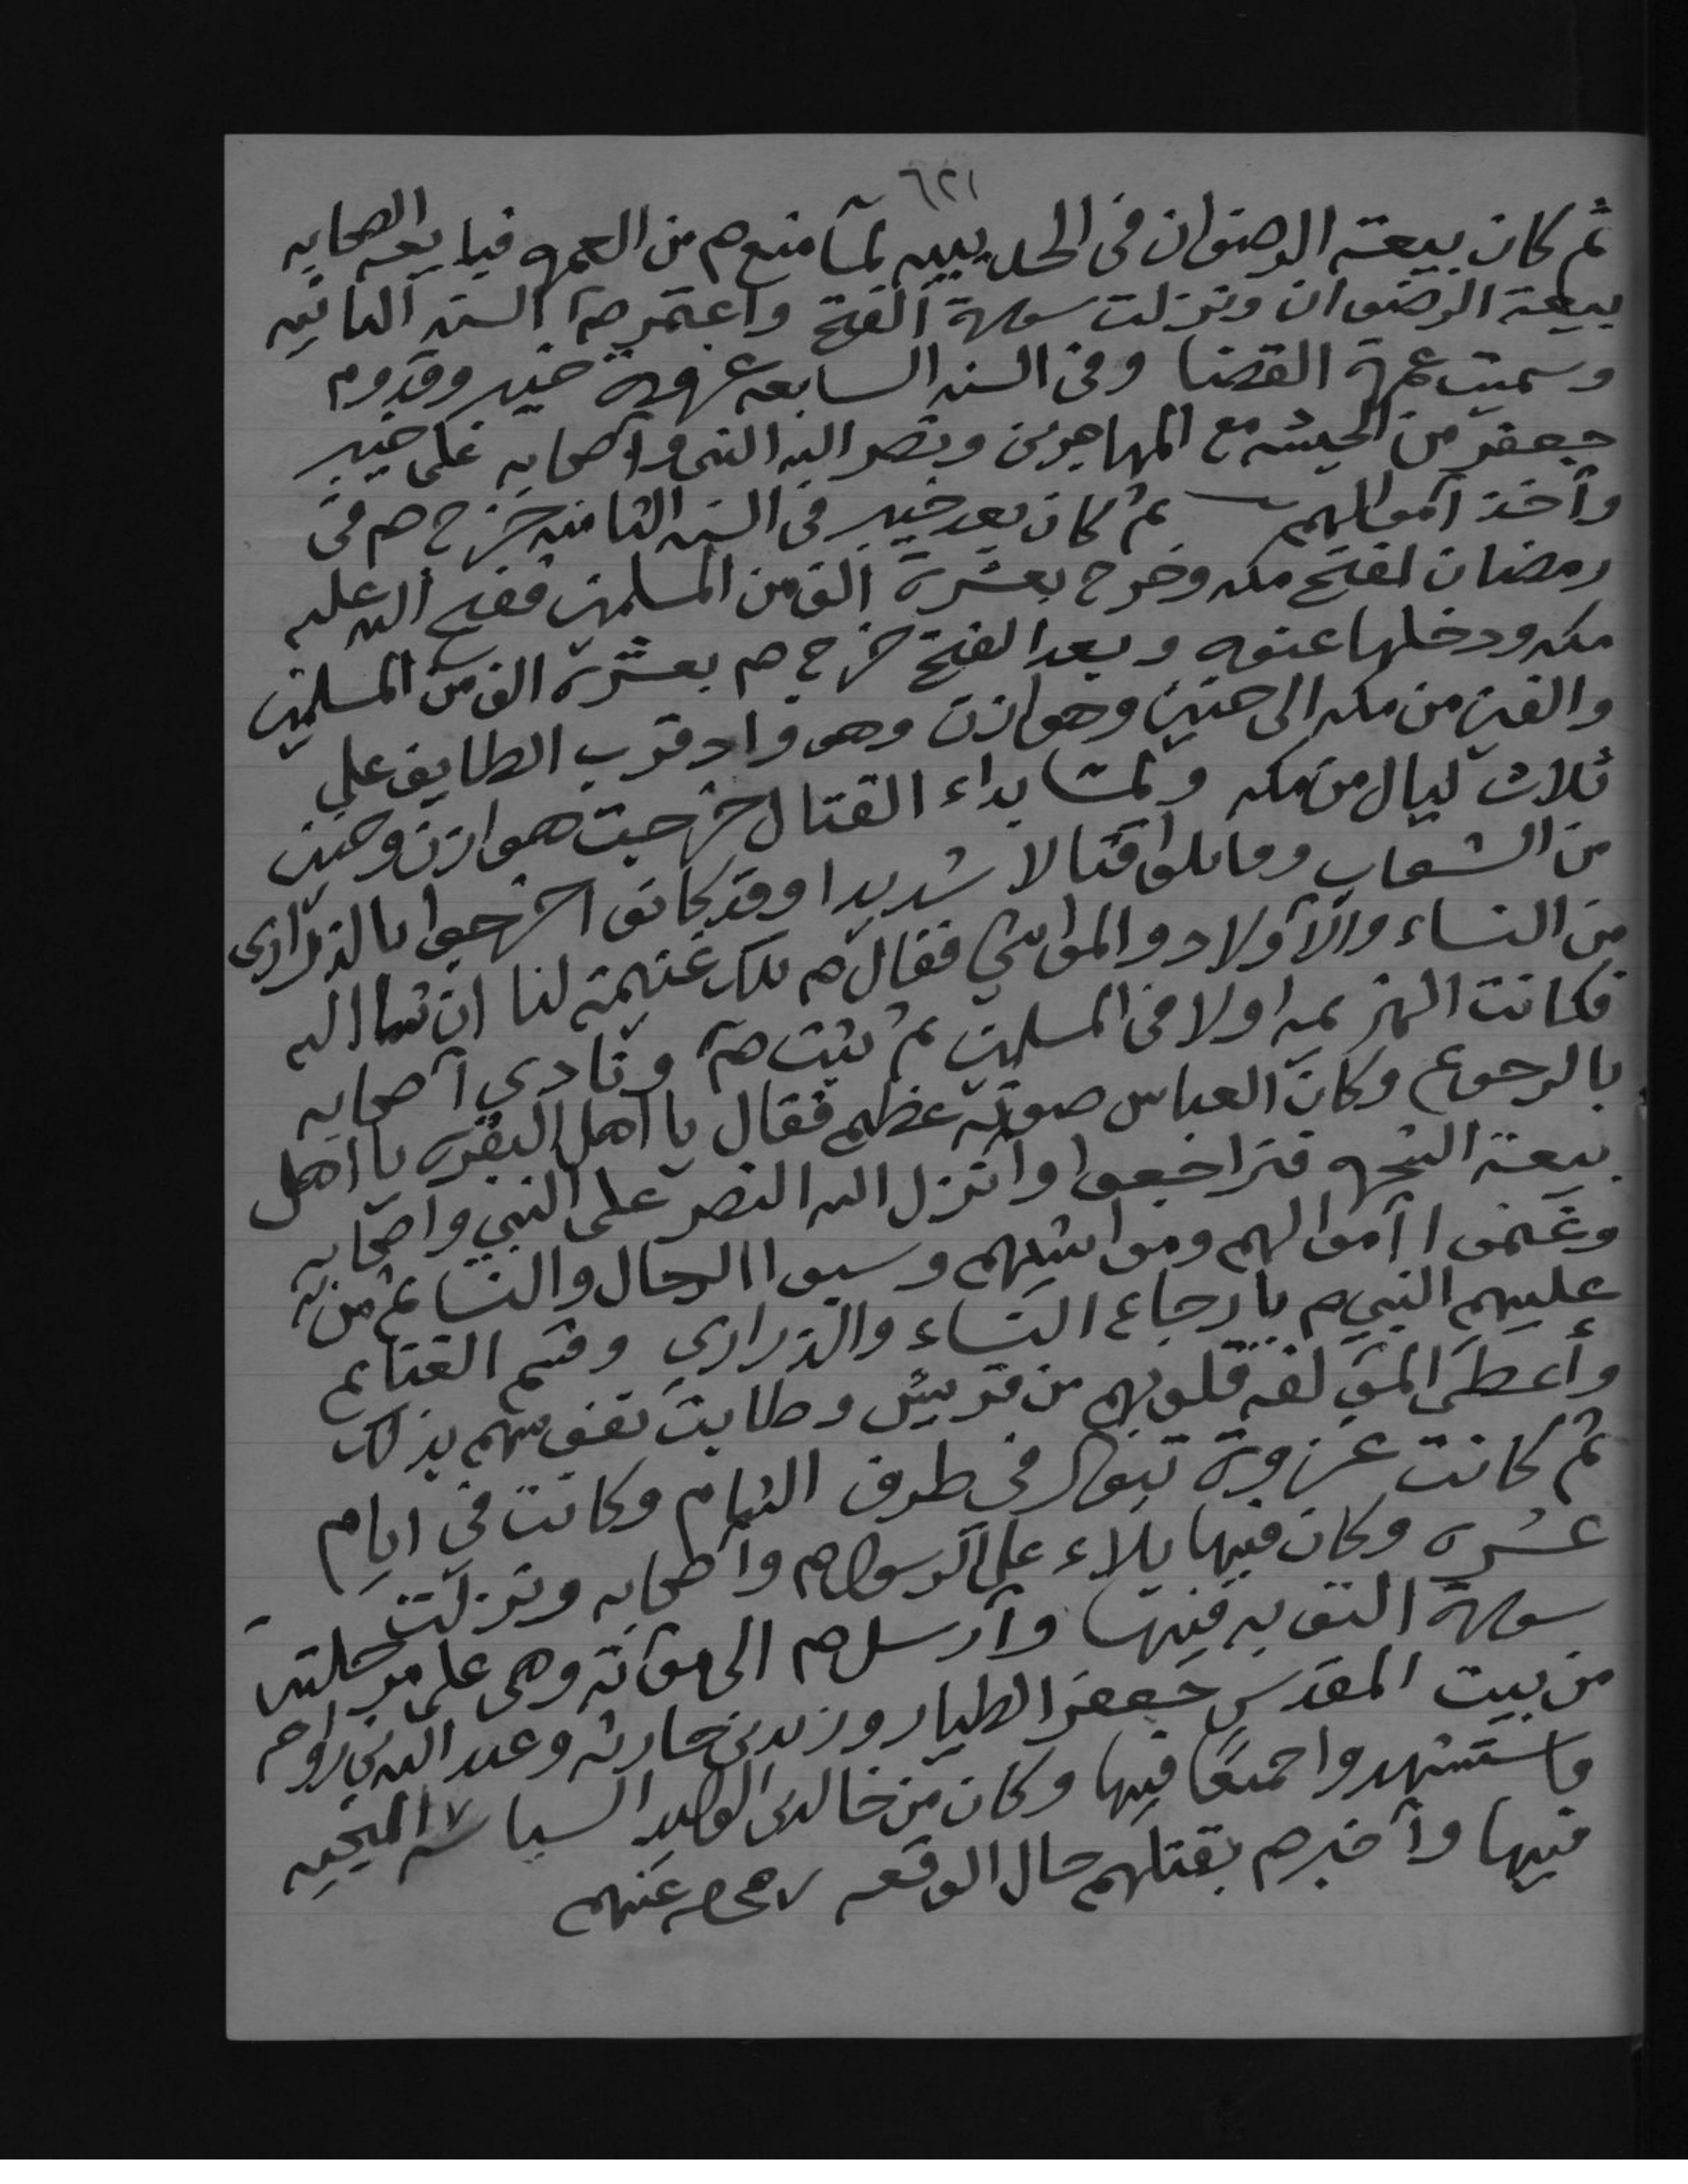 ٦٢١
ثم كان بيعة الرضوان فى الحديبيه لمآ منع ص من العمره فبايعه الصحابه
بيعة الرضوان ونزلت سورة الفتح واعتمر ص السنه الثانيه
وسميت عمرة القضا وفى السنه السابعه غزوة خيبر وقدوم
جعفر من الحبشه مع المهاجرين ونصر الله النبى وأصحابه على خيبر
وأخذ أموالهم ثم كان بعد خيبر فى السنه الثامنه خرج ص فى
رمضان لفتح مكه وخرج بعشرة الف من المسلمين ففتح الله عليه
مكه ودخلها عنوه وبعد الفتح خرج ص بعشرة الف من المسلمين
والفين من مكه الى حنين وهوازن وهو واد قرب الطايف على
ثلاث ليال من مكه ولمآ بداء القتال خرجت هوازن وحنين
من الشعاب وقاتلوا قتالا شديدا وقد كانوا اخرجوا بالذراري
من النساء والأولاد والمواشي فقال ص تلك غنيمة لنا ان شا الله
فكانت الهزيمه اولا فى المسلمين ثم ثبت ص ونادى أصحابه
بالرجوع وكان العباس صوته عظيم فقال يا اهل البقره يا اهل
بيعة الشجره فتراجعوا وانزل الله النصر على النبي واصحابه
وغنموا أموالهم ومواشيهم وسبوا الرجال والنسا ثم من
عليهم النبي ص بارجاع النساء والذراري وقسم الغنايم
وأعطى المؤلفه قلوبهم من قريش وطابت نفوسهم بذلك
ثم كانت غزوة تبوك فى طرف الشام وكانت فى ايام
عسره وكان فيها بلاء على الرسول ص وأصحابه ونزلت
سورة التوبه فيها وأرسل ص الى مؤته وهى على مرحلتين
من بيت المقدس جعفر الطيار وزيد بن حارثه وعبد الله بن رواحه
فاستشهدوا جميعًا فيها وكان من خالد بن الوليد السياسه المنجيه
فيها وأخبر ص بقتلهم حال الوقعه رضي الله عنهم